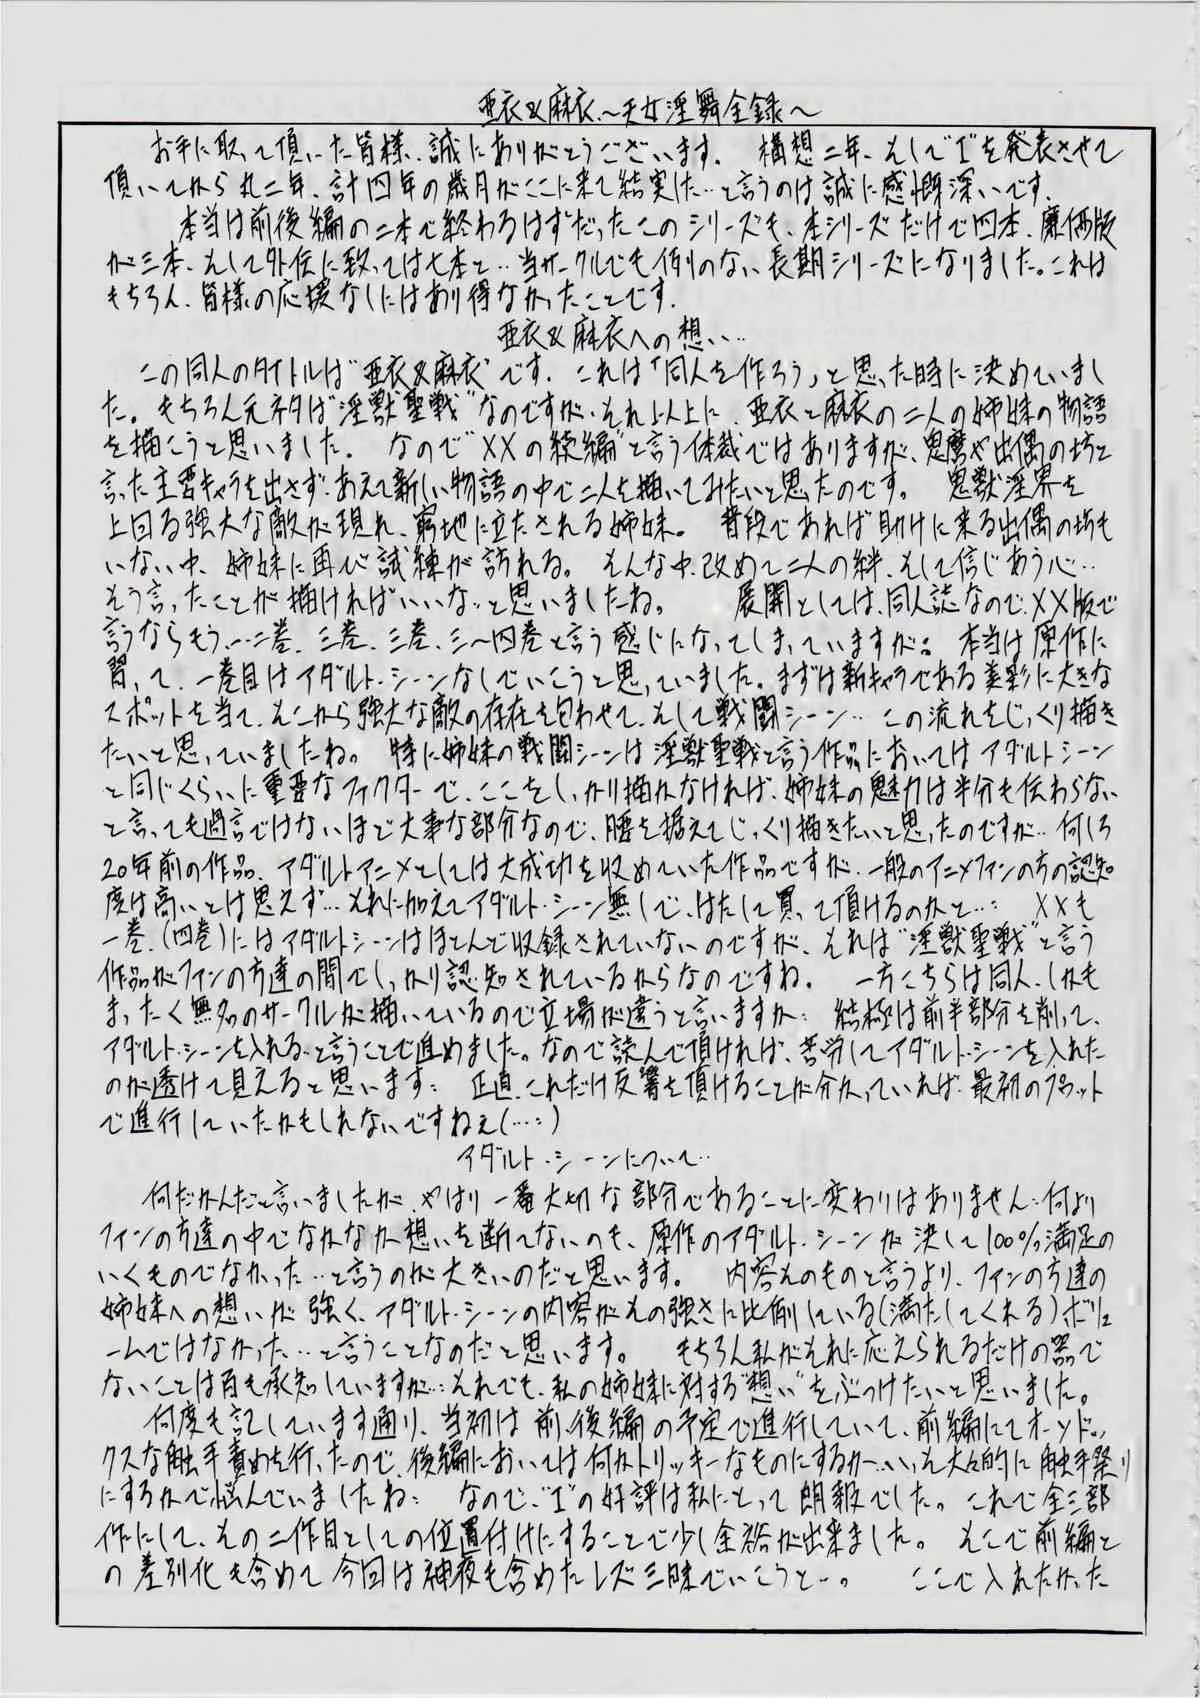 亜衣&麻衣～天女淫舞全録～
お手に取って頂いた皆様、誠にありがとうございます。 構想二年、そして"I"を発表させて
頂いてから丸二年、計四年の歳月がここに来て結実した…と言うのは誠に感慨深いです。
本当は前後編の二本で終わるはずだったこのシリーズも、本シリーズだけで四本、廉価版
が三本、そして外伝に致っては七本と…当サークルでも例のない長期シリーズになりました。これは
もちろん、皆様の応援なしにはあり得なかったことです。
亜衣&麻衣への想い…
この同人のタイトルは"亜衣&麻衣"です。これは「同人を作ろう」と思った時に決めていまし
た。もちろん元ネタは"淫獣聖戦"なのですが、それ以上に、亜衣と麻衣の二人の姉妹の物語
を描こうと思いました。 なので"XXの続編"と言う体裁ではありますが、鬼麿や出偶の坊と
言った主要キャラを出さず、あえて新しい物語の中で二人を描いてみたいと思たのです。 鬼獣淫界を
上回る強大な敵が現れ、窮地に立たされる姉妹。 普段であれば助けに来る出偶の坊も
いない中、姉妹に再び試練が訪れる。 そんな中、改めて二人の絆、そして信じあう心…
そう言ったことが描ければいいな…と思いましたね。 展開としては、同人誌なので、XX版で
言うならもう…二巻、三巻、三巻、三～四巻と言う感じになってしまっていますが。 本当は原作に
習って、一巻目はアダルト・シーンなしでいこうと思っていました。まずは新キャラである美影に大きな
スポットを当て、そこから強大な敵の存在を匂わせて、そして戦闘シーン…この流れをじっくり描き
たいと思っていましたね。 特に姉妹の戦闘シーンは淫獣聖戦と言う作品においてはアダルトシーン
と同じくらいに重要なファクターで、ここをしっかり描かなければ、姉妹の魅力は半分も伝わらない
と言っても過言ではないほど大事な部分なので、腰を据えてじっくり描きたいと思ったのですが…何しろ
20年前の作品、アダルトアニメとしては大成功を収めていた作品ですが、一般のアニメファンの方の認知
度は高いとは思えず…それに加えてアダルト・シーン無しで、はたして買って頂けるのかと…: XXも
一巻、(四巻)にはアダルトシーンはほとんど収録されていないのですが、それは"淫獣聖戦"と言う
作品がファンの方達の間でしっかり認知されているからなのですね。 一方こちらは同人、しかも
まったく無名のサークルが描いているので立場が違うと言いますか: 結極は前半部分を削って、
アダルト・シーンを入れる…と言うことで進めました。なので読んで頂ければ、苦労してアダルト・シーンを入れた
のが透けて見えると思います: 正直、これだけ反響を頂けることが分かっていれば、最初のプロット
で進行していたかもしれないですねぇ(…:)
アダルト・シーンについて…
何だかんだと言いましたが、やはり一番大切な部分であることに変わりはありません:何より
ファンの方達の中でなかなか想いを断てないのも、原作のアダルト・シーンが決して100%満足の
いくものでなかった…と言うのが大きいのだと思います。 内容そのものと言うより、ファンの方達の
姉妹への想いが強く、アダルト・シーンの内容がその強さに比例している(満たしてくれる)ボリュ
ームではなかった…と言うことなのだと思います。 もちろん私がそれに応えられるだけの器で
ないことは百も承知していますが…:それでも、私の姉妹に対する"想い"をぶつけたいと思いました。
何度も記しています通り、当初は前、後編の予定で進行していて、前編にてオーソドッ
クスな触手責めを行ったので、後編においては何かトリッキーなものにするか…いっそ大々的に触手祭り
にするかで悩んでいましたね: なので、"I"の好評は私にとって朗報でした。これで全三部
作にして、その二作目としての位置付けにすることで少し余裕が出来ました。 そこで前編と
の差別化も含めて今回は神夜も含めたレズ三昧でいこうと…。 ここで入れたかった